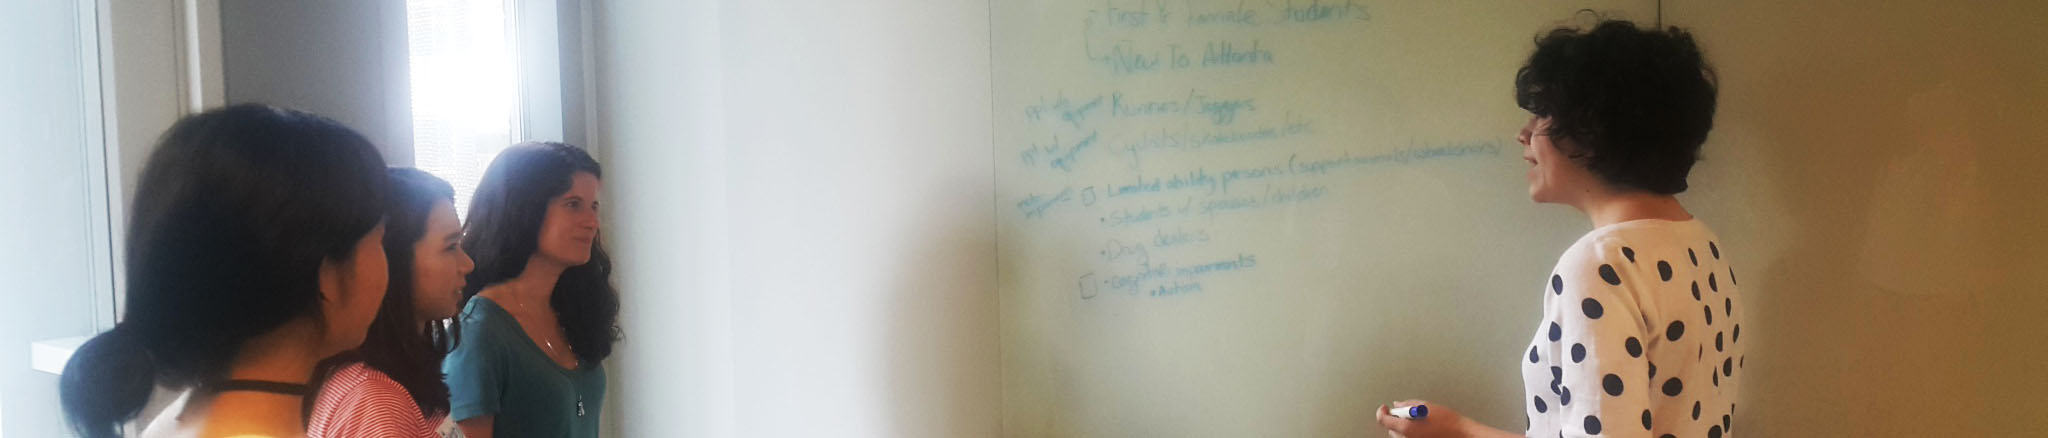 - First Yr Female Students
- New To Atlanta
ppl w/o equipment Runners/Joggers
ppl w/ equipment Cyclists/skateboarders/etc
Limited ability persons (support animals/wheelchairs)
• Students w/ spouses/children
• Drug dealers
• Cognitive impairments
• Autism